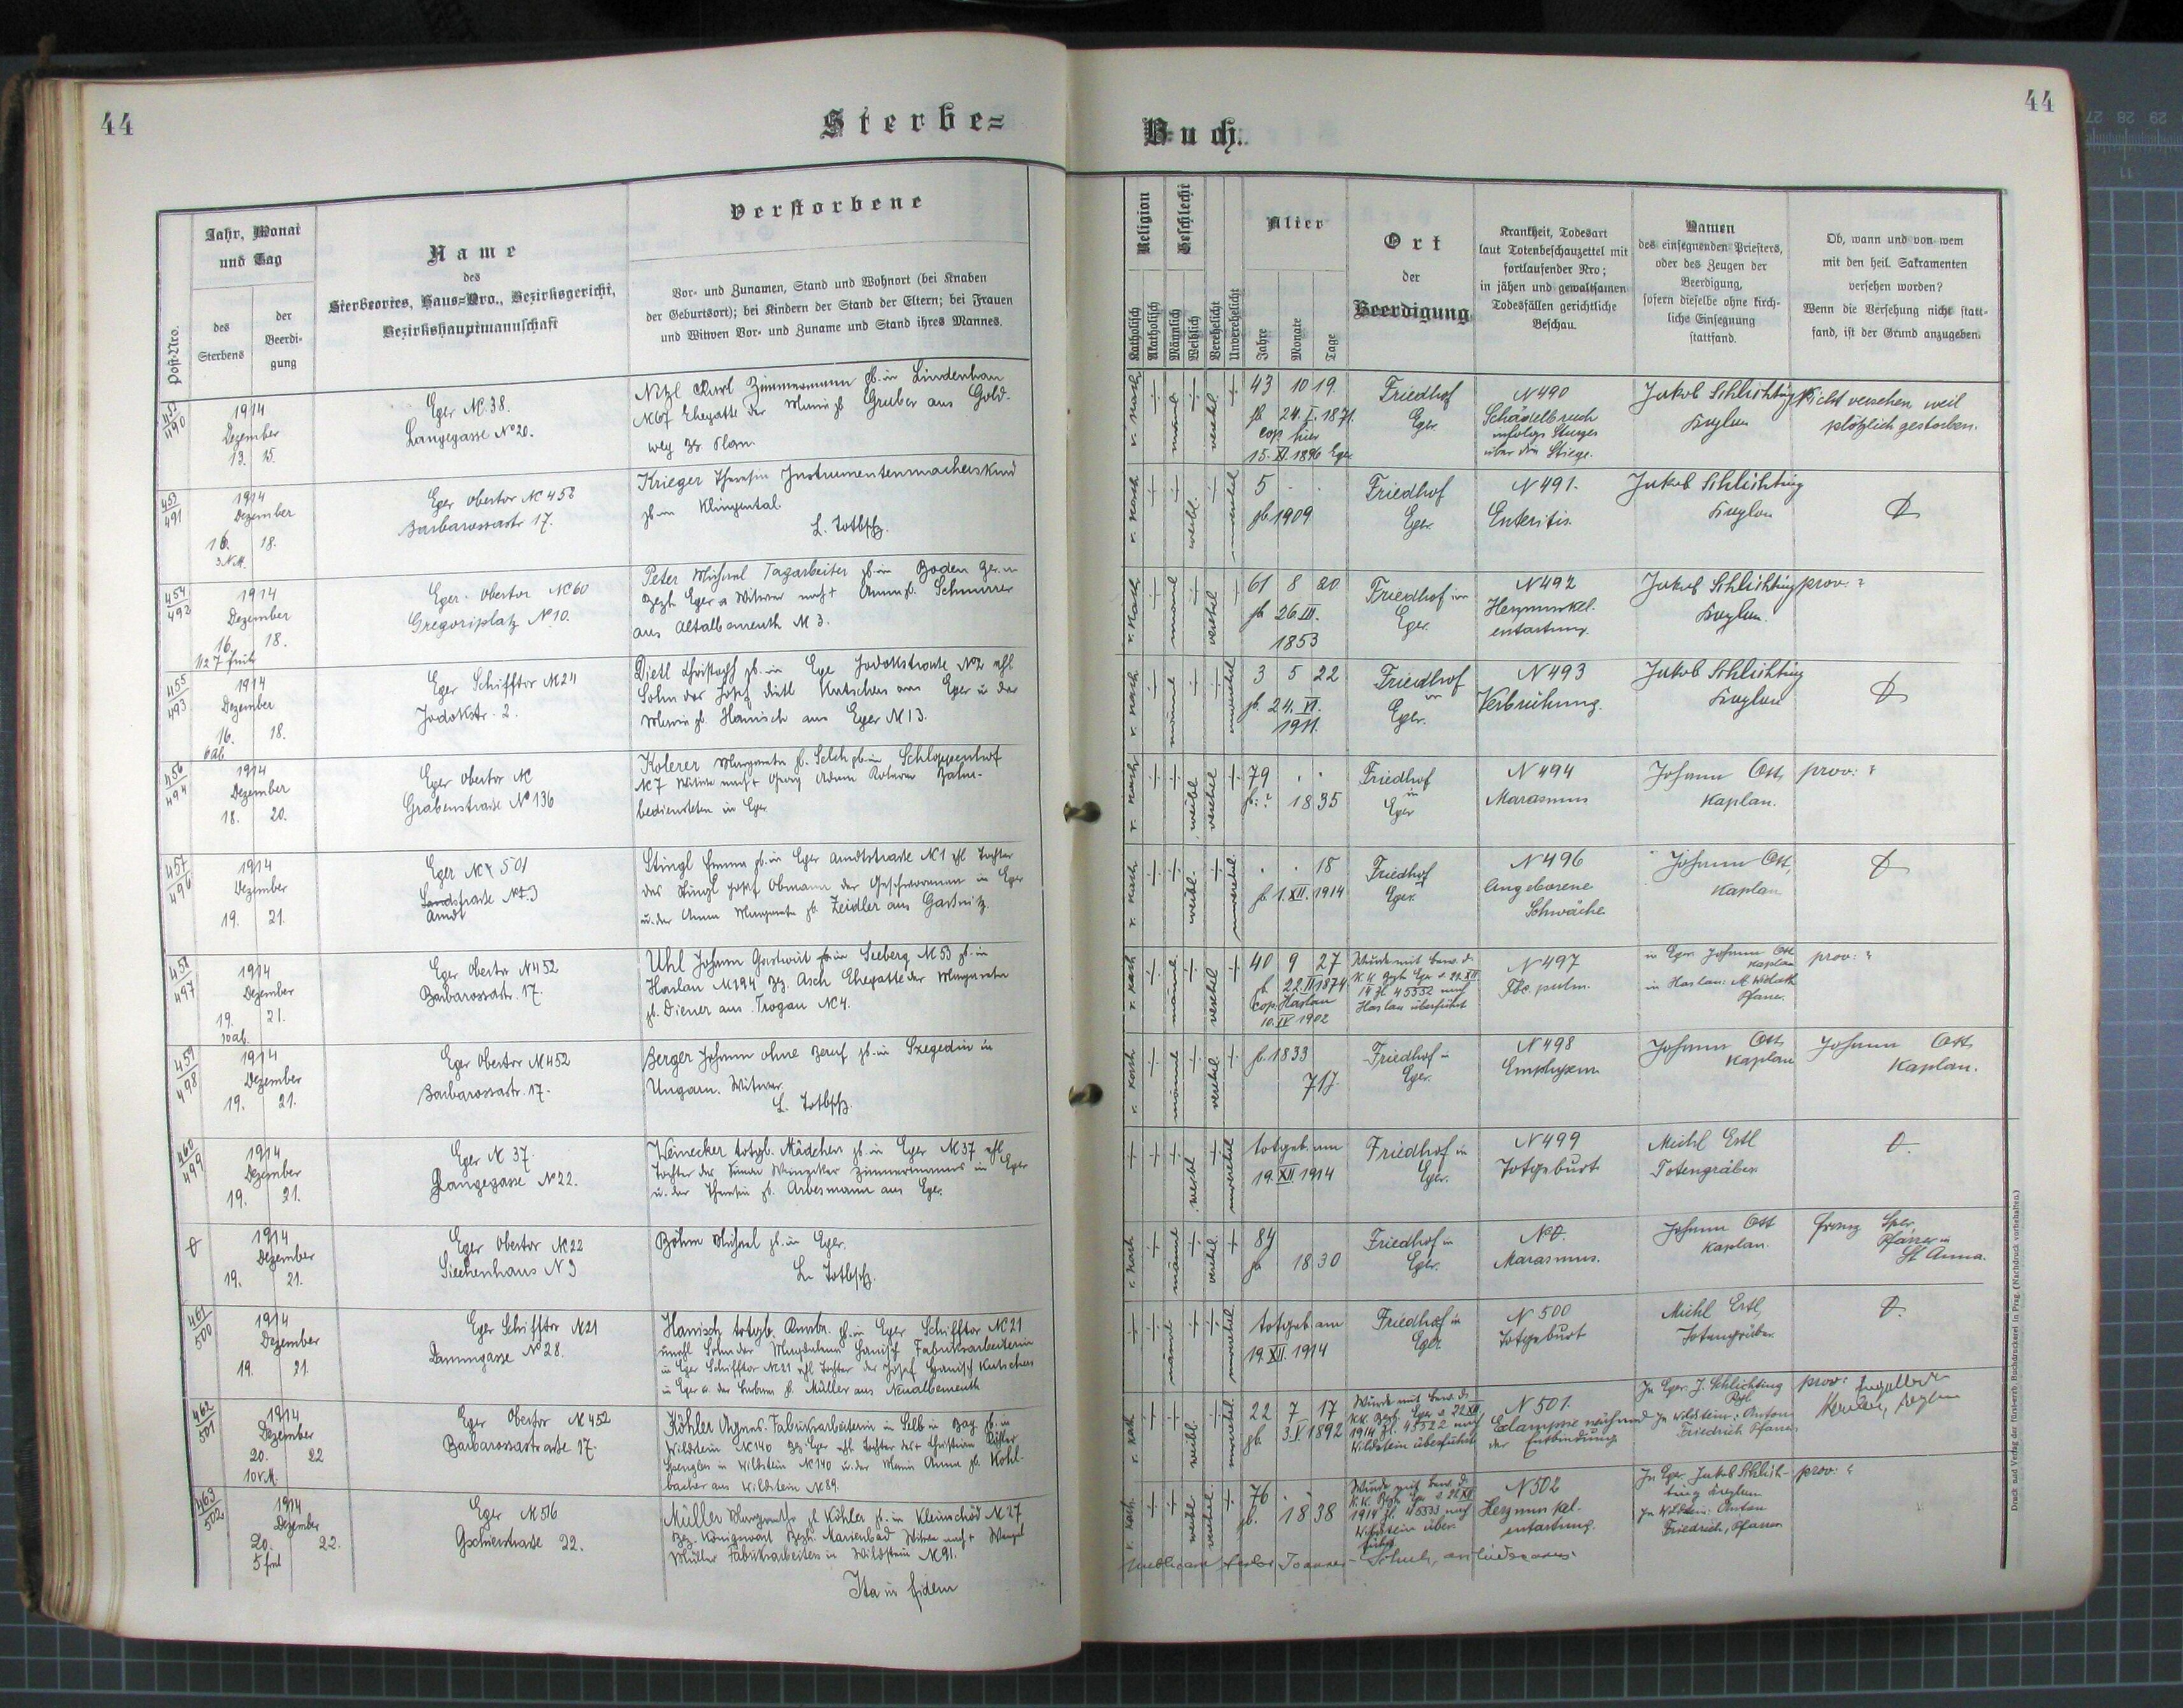 44
Sterbe=
Buch.
44
Post-Nro.
Jahr, Monat
und Tag
des
Sterbens
der
Beerdi-
gung
Name
des
Sterbeortes, Haus-Nro., Bezirksgericht,
Bezirkshauptmannschaft
Verstorbene
Vor- und Zunamen, Stand und Wohnort (bei Knaben
der Geburtsort); bei Kindern der Stand der Eltern; bei Frauen
und Witwen Vor- und Zuname und Stand ihres Mannes.
Religion
Katholisch
Akatholisch
Geschlecht
Männlich
Weiblich
Verehelicht
Unverehelicht
Alter
Jahre
Monate
Tage
Ort
der
Beerdigung
Krankheit, Todesart
laut Totenbeschauzettel mit
fortlaufender Nro;
in jähen und gewaltsamen
Todesfällen gerichtliche
Beschau.
Namen
des einsegnenden Priesters,
oder des Zeugen der
Beerdigung,
sofern dieselbe ohne kirch-
liche Einsegnung
stattfand.
Ob, wann und von wem
mit den heil. Sakramenten
versehen worden?
Wenn die Versehung nicht statt-
fand, ist der Grund anzugeben.
490
1914
Dezember
13. 15.
Eger NC. 38.
Langegasse No 20.
Karl Zimmermann gb. in Lindenhau
NC 67 Ehegatte der Maria gb Gruber aus Gold-
r. kath
männl
verehel
43 10 19.
gb. 24. I. 1871.
cop hier
15. XI. 1896 Eger
Friedhof
Eger
N 490
Schädelbruch
infolge Sturzes
über die Stiege.
Jakob Schlichting
Kaplan
Nicht versehen weil
plötzlich gestorben.
453
491
1914
Dezember
16. 18.
3 N.M.
Eger Obertor NC 452
Barbarossastr 17.
Krieger Theresia Instrumentenmacherskind
gb in Klingental.
L. Totbsch.
r. kath
weibl.
unverehel
5
gb 1909
Friedhof
Eger.
N 491.
Enteritis.
Jakob Schlichting
Kaplan
454
492
1914
Dezember
16. 18.
1/2 7 früh
Eger Obertor NC 60
Gregoriplatz No 10.
Peter Michael Tagarbeiter gb. in Boden
Bezh Eger Witwer nach + Anna gb. Schmirrer
aus Altalbenreuth N 3.
r. kath
männl
verehel
61 8 20
gb 26 III.
1853
Friedhof in
Eger.
N 492
Herzmuskel-
entartung.
Jakob Schlichting
Kaplan.
prov: ?
455
493
1914
Dezember
16. 18.
6 ab.
Eger Schifftor NC 24
Jodokstr. 2.
Dietl Christoph gb. in Eger Jodokstraße No 2 ehl
Sohn des Josef Dietl Kutschers aus Eger u der
Maria gb. Hanisch aus Eger N 13.
r. kath
männl
unverehel
3 5 22
gb. 24. VI.
1911.
Friedhof
in
Eger.
N 493
Verbrühung.
Jakob Schlichting
Kaplan
456
494
1914
Dezember
18. 20.
Eger Obertor NC
Grabenstraße No 136
Kolerer Margareta gb. Selch gb in Schloppenhof
NC 7 Witwe nach + Georg Adam Kolerer Bahn-
bediensteten in Eger
r. kath
weibl
verehel
79
gb: ? 1835
Friedhof
in
Eger
N 494
Marasmus
Johann Ott
Kaplan.
prov: ?
457
496
1914
Dezember
19. 21.
Eger NC 501
Arndt
Stingl Emma gb. in Eger Arndtstraße N 1 ehl Tochter
des Stingl Josef Obmann der Geschworenen in Eger
u. der Anna Margareta gb. Zeidler aus Gaßnitz.
r. kath
weibl.
unverehel.
18
gb 1. XII. 1914
Friedhof
Eger.
N 496
Angeborene
Schwäche
Johann Ott,
Kaplan
458
497
1914
Dezember
19. 21.
10 ab.
Eger Obertor N 452
Barbarossastr. 17.
Uhl Johann Gastwirt in Seeberg N 53 gb. in
Haslau N 194 Bz. Asch Ehegatte der Margareta
gb. Diener aus Trogau NC 4.
r. kath
männl
verehel
40 9 27
gb 22. II 1874
cop. Haslau
10. IV 1902
Wurde mit Bew. d.
K.K. Bezh Eger v. 22. XII
14 Zl 45532 nach
Haslau überführt
N 497
Tbc. pulm.
in Eger Johann Ott
Kaplan
Pfarrer.
prov: ?
459
498
1914
Dezember
19. 21.
Eger Obertor N 452
Barbarossastr. 17.
Berger Johann ohne Beruf gb. in Szegedin in
Ungarn. Witwer.
L. Totbsch.
r. kath
männl
verehel.
gb. 1833
Friedhof in
Eger.
N 498
Emphysem
Johann Ott
Kaplan
Johann Ott
Kaplan.
460
499
1914
Dezember
19. 21.
Eger N 37.
Langegasse No 22.
Weinecker totgb. Mädchen gb. in Eger N 37 ehl
u. der Theresia gb. Arbesmann aus Eger.
weibl
unverehel
totgeb. am
19. XII 1914
Friedhof in
Eger.
N 499
Totgeburt
Michl Ertl
Totengräber
1914
Dezember
19. 21.
Eger Obertor NC 22
Siechenhaus N 3
Böhm Michael gb. in Eger.
L. Totbsch.
r. kath
männl
verehel.
84
gb 1830
Friedhof in
Eger.
Marasmus.
Johann Ott
Kaplan.
Franz
Pfarrer in
St Anna.
461
500
1914
Dezember
19. 21.
Eger Schifftor N 21
Dammgasse No 28.
Hanisch totgb. Knabe gb. in Eger Schifftor NC 21
unehl Sohn der Magdalena Hanisch Fabriksarbeiterin
in Eger Schifftor NC 21 ehl Tochter des Josef Hanisch Kutschers
in Eger u. der Barbara gb. Müller aus Neualbenreuth
männl
unverehel
totgeb am
19. XII. 1914
Friedhof in
Eger
N 500
Totgeburt
Michl Ertl
Totengräber
462
501
1914
Dezember
20. 22
10 v.M.
Eger Obertor N 452
Barbarossastraße 17.
Köhler Agnes. Fabriksarbeiterin in Selb in Bay. gb. in
Wildstein NC 140 Bz. Eger ehl Tochter des + Christian Köhler
Spengler in Wildstein NC 140 u. der Maria Anna gb. Kohl-
bacher aus Wildstein N 89.
r. kath
weibl.
unverehel.
22 7 17
gb. 3 V 1892
Wurde mit Bew. d.
K.K. Bezh. Eger v. 22 XII.
1914 Zl. 45522 nach
Wildstein überführt
N 501.
Eclampsie während
der Entbindung
In Eger J. Schlichting
In Wildstein: Anton
Friedrich Pfarrer
prov:
463
502
1914
Dezember
20. 22.
5 früh
Eger N 516
Gschierstraße 22.
Müller Margaretha gb. Köhler gb. in Kleinschüd N 27
Bz. Königswart Bezh. Marienbad Witwe nach + Wenzel
Müller Fabriksarbeiter in Wildstein N 91.
r. kath.
weibl
verehel.
76
gb. 1838
Wurde mit Bew. d.
K.K. Bezh Eger v. 22 XII
1914 Zl. 45533 nach
Wildstein über-
führt
N 502
Herzmuskel-
entartung.
In Eger Jakob Schlich-
ting Kaplan
In Wildstein: Anton
Friedrich, Pfarrer
prov: ?
Ita in fidem
Druck und Verlag der fürsterzb. Buchdruckerei in Prag. (Nachdruck vorbehalten.)